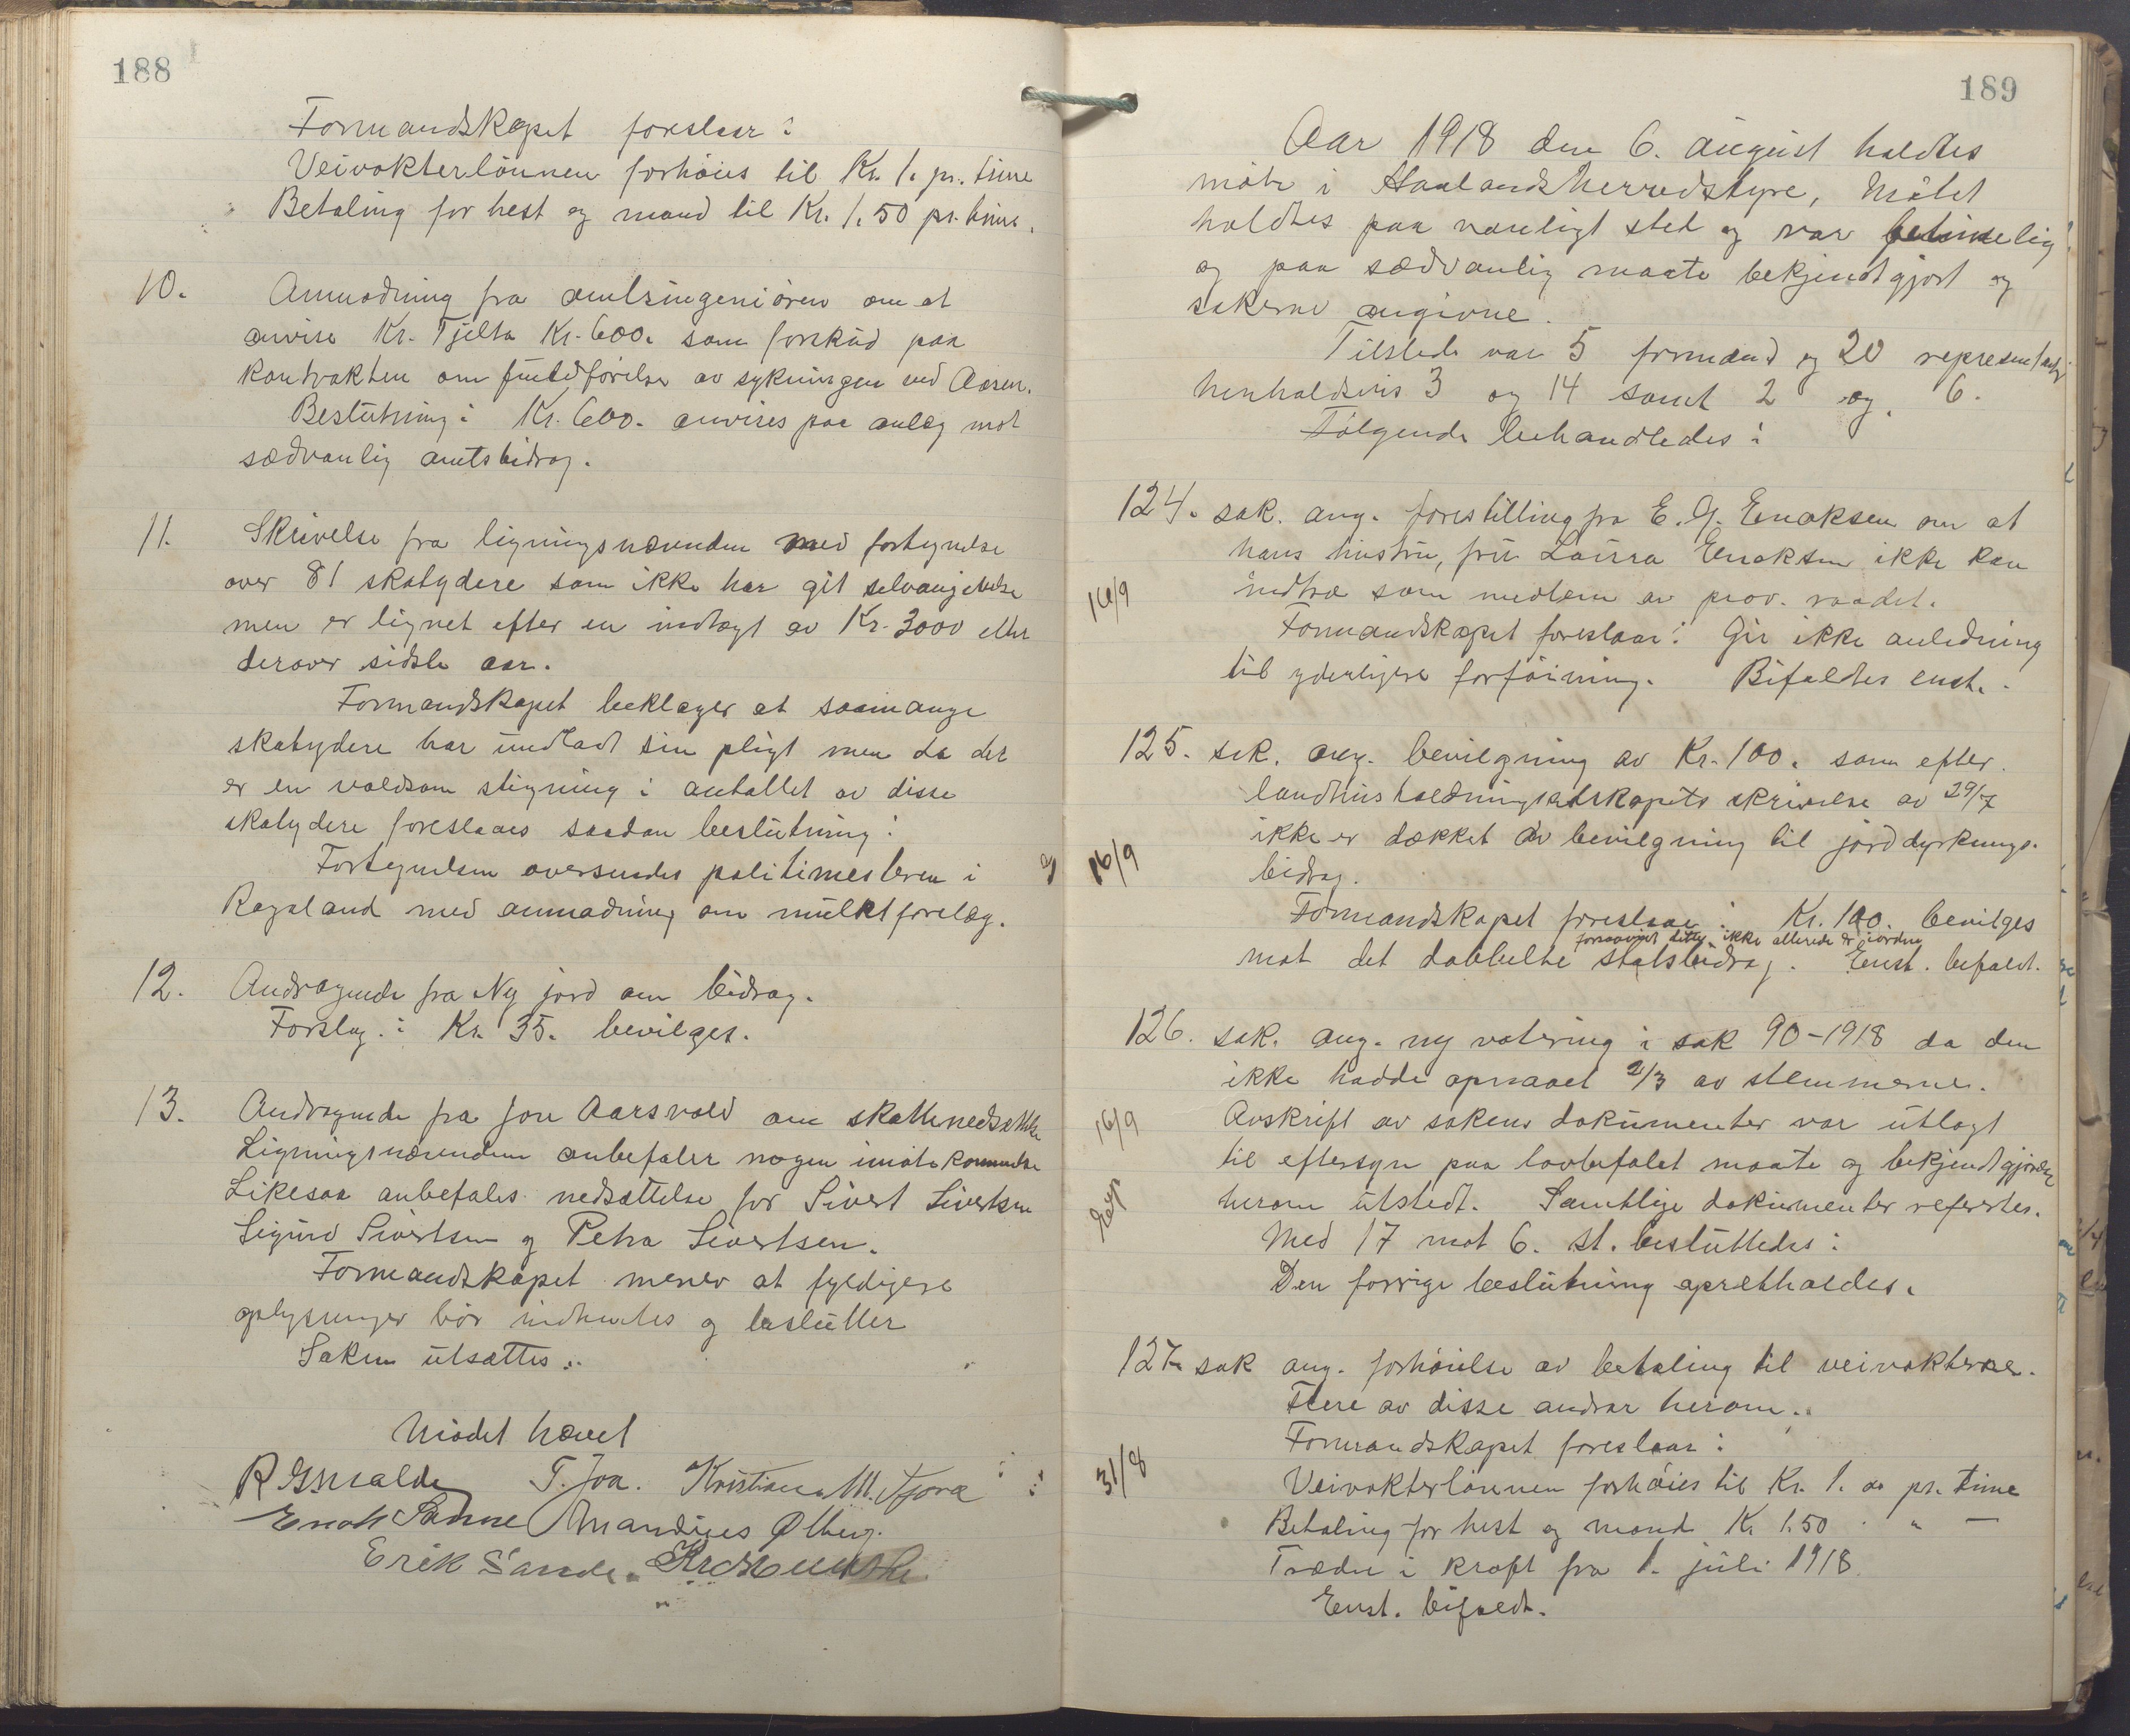 188
Formandskapet foreslaar:
Veivokterlönnen forhöies til Kr. 1. pr. time
Betaling for hest og mand til Kr. 1.50 pr. time.
10. Anmodning fra amtsingeniören om at
anvise Kr. Tjelta Kr. 600. som forskud paa
kontrakten om fuldförelse av sykningen ved Aasen.
Beslutning: Kr. 600. anvises paa anlæg mot
sædvanlig amtsbidrag.
11. Skrivelse fra ligningsnævnden med fortegnelse
over 81 skatydere som ikke har git selvangivelse
men er lignet efter en indtægt av Kr. 3000 eller
derover sidste aar.
Formandskapet beklager at saamange
skatydere har undladt sin pligt men da det
er en voldsom stigning i antallet av disse
skatydere foreslaaes saadan beslutning:
Fortegnelsen oversendes politimesteren i
Rogaland med anmodning om mulktforelæg.
12. Andragende fra Ny jord om bidrag.
Forslag: Kr. 35. bevilges.
13. Andragende fra Jon Aarsvold om skattenedsættelse
Ligningsnævnden anbefaler nogen imötekommelse
Likesaa anbefales nedsættelse for Sivert Sivertsen
Sigurd Sivertsen og Petra Sivertsen.
Formandskapet mener at fyldigere
oplysninger bör indhentes og beslutter
Saken utsættes.
Mödet hævet
T. Joa. Kristian M. Tjora
Enok Sande Amandius Ölberg.
Erik Sande.
189
Aar 1918 den 6. august holdtes
möte i Haalandsherredstyre, Mötet
holdtes paa vanligt sted og var betimelig
og paa sædvanlig maate bekjendtgjort og
sakerne angivne.
Tilstede var 5 formænd og 20 represent.
henholdsvis 3 og 14 samt 2 og 6.
Fölgende behandledes:
124. sak. ang. forestilling fra E. G. Enoksen om at
hans hustru, fru Laura Enoksen ikke kan
16/9 indtræ som medlem av prov. raadet.
Formandskapet foreslaar: Gir ikke anledning
til yderligere forföining. Bifaldtes enst.
125. sak. ang. bevilgning av Kr. 100. som efter
landhusholdningselskapets skrivelse av 29/7
ikke er dækket av bevilgning til jorddyrknings-
16/9 bidrag.
Formandskapet foreslaar: Kr. 100. bevilges
forsaavidt dette ikke allerede er iorden
mot det dobbelte statsbidrag. Enst. befaldt.
126. sak. ang. ny votering i sak 90-1918 da den
ikke hadde opnaaet 2/3 av stemmerne.
16/9 Avskrift av sakens dokumenter var utlagt
til eftersyn paa lovbefalet maate og bekjendtgjörelse
herom utstedt. Samtlige dokumenter refertes.
Med 17 mot 6. st. besluttedes:
Den forrige beslutning opretholdes.
127. sak ang. forhöielse av betaling til veivokterne.
Flere av disse andrar herom.
Formandskapet foreslaar:
31/8 Veivokterlönnen forhöies til Kr. 1. 00 pr. time
Betaling for hest og mand Kr 1.50 " " —
Træder i kraft fra 1. juli 1918.
Enst. bifaldt.